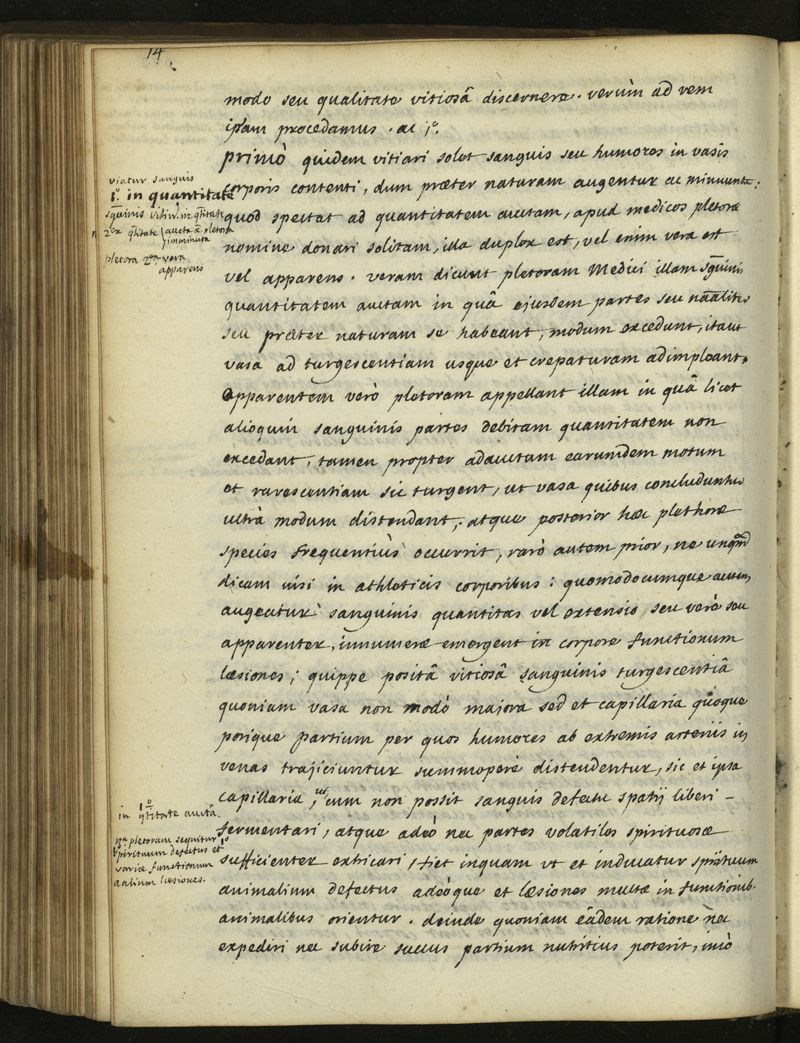 14
modo seu qualitate vitiosâ discernere. verùm ad rem
ipsam procedamus. ac 1º.
primò quidem vitiari solet sanguis seu humores in vasis
corporis contenti, dum præter naturam augentur ac minuuntur;
quod spectat ad quantitatem auctam, apud medicos pletoræ
nomine donari solitam, illa duplex est, vel enim vera est
vel apparens. veram dicunt pletoram Medici illam sguinis
quantitatem auctam in quâ ejusdem partes seu nãaliter
seu præter naturam se habeant, modum excedunt, itaut
vasa ad turgescentiam usque et crepaturam adimpleant.
Apparentem verò pletoram appellant illam in quâ licet
alioquin sanguinis partes debitam quantitatem non
excedant, tamen propter adauctam earumdem motum
et rarescentiam sic turgent, ut vasa quibus concluduntur
ultrà modum distendant; atque posterior hæc plethoræ
species frequentiùs occurrit, rarò autem prior, ne unquam
dicam nisi in athleticis corporibus: quomodocumque autem
augeatur sanguinis quantitas vel extensio, seu verè seu
apparenter, innumeræ emergent in corpore functionum
læsiones; quippe positâ vitiosâ sanguinis turgescentiâ
quoniam vasa non modò majora sed et capillaria quoque
porique partium per quos humores ab extremis arteriis in
venas trajiciuntur summoperè distendentur, sic et ipsa
capillaria, cum non possit sanguis defectu spatij liberi
fermentari, atque adeò nec partes volatiles spirituosæ
sufficienter extricari, fiet inquam ut et inducatur spirituum
animalium defectus adeòque et læsiones multæ in functionib.
animalibus orientur. deinde quoniam eâdem ratione nec
expediri nec subire succus partium nutritius poterit, imò
viatur sanguis
1º. in quantitate
sguinis vitiu. in qtitate
2ex qtitate aucta ê pletora
imminuta
pletora 2ex vera
apparens
1º
in qtitate auctâ
pletoram sequitur 1º
spirituum defectus et
variæ functionum
aalium læsiones.